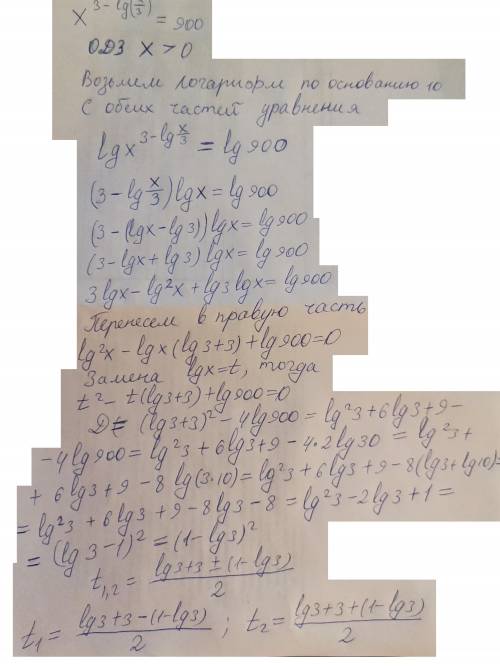 x^{3-lg(x/3)} = 900
ОДЗ x > 0
Возьмем логарифм по основанию 10
С обеих частей уравнения
lg x^{3-lg x/3} = lg 900
(3 - lg x/3) lg x = lg 900
(3 - (lg x - lg 3)) lg x = lg 900
(3 - lg x + lg 3) lg x = lg 900
3 lg x - lg²x + lg 3 lg x = lg 900
Перенесем в правую часть
lg²x - lg x (lg 3 + 3) + lg 900 = 0
Замена lg x = t, тогда
t² - t (lg 3 + 3) + lg 900 = 0
D = (lg 3 + 3)² - 4 lg 900 = lg²3 + 6 lg 3 + 9 -
- 4 lg 900 = lg²3 + 6 lg 3 + 9 - 4 • 2 lg 30 = lg²3 +
+ 6 lg 3 + 9 - 8 lg (3 • 10) = lg²3 + 6 lg 3 + 9 - 8 (lg 3 + lg 10) =
= lg²3 + 6 lg 3 + 9 - 8 lg 3 - 8 = lg²3 - 2 lg 3 + 1 =
= (lg 3 - 1)² = (1 - lg 3)²
t_{1,2} = (lg 3 + 3 ± (1 - lg 3)) / 2
t₁ = (lg 3 + 3 - (1 - lg 3)) / 2 ; t₂ = (lg 3 + 3 + (1 - lg 3)) / 2